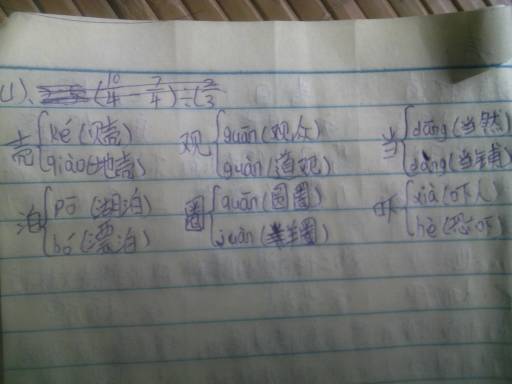 (1)、(10/4 7/4)÷(2/3
壳 ké(贝壳) 观 guān(观众) 当 dāng(当然)
qiào(地壳) guàn(道观) dàng(当铺)
泊 pō(湖泊) 圈 quān(圆圈) 吓 xià(吓人)
bó(漂泊) juàn(羊圈) hè(恐吓)